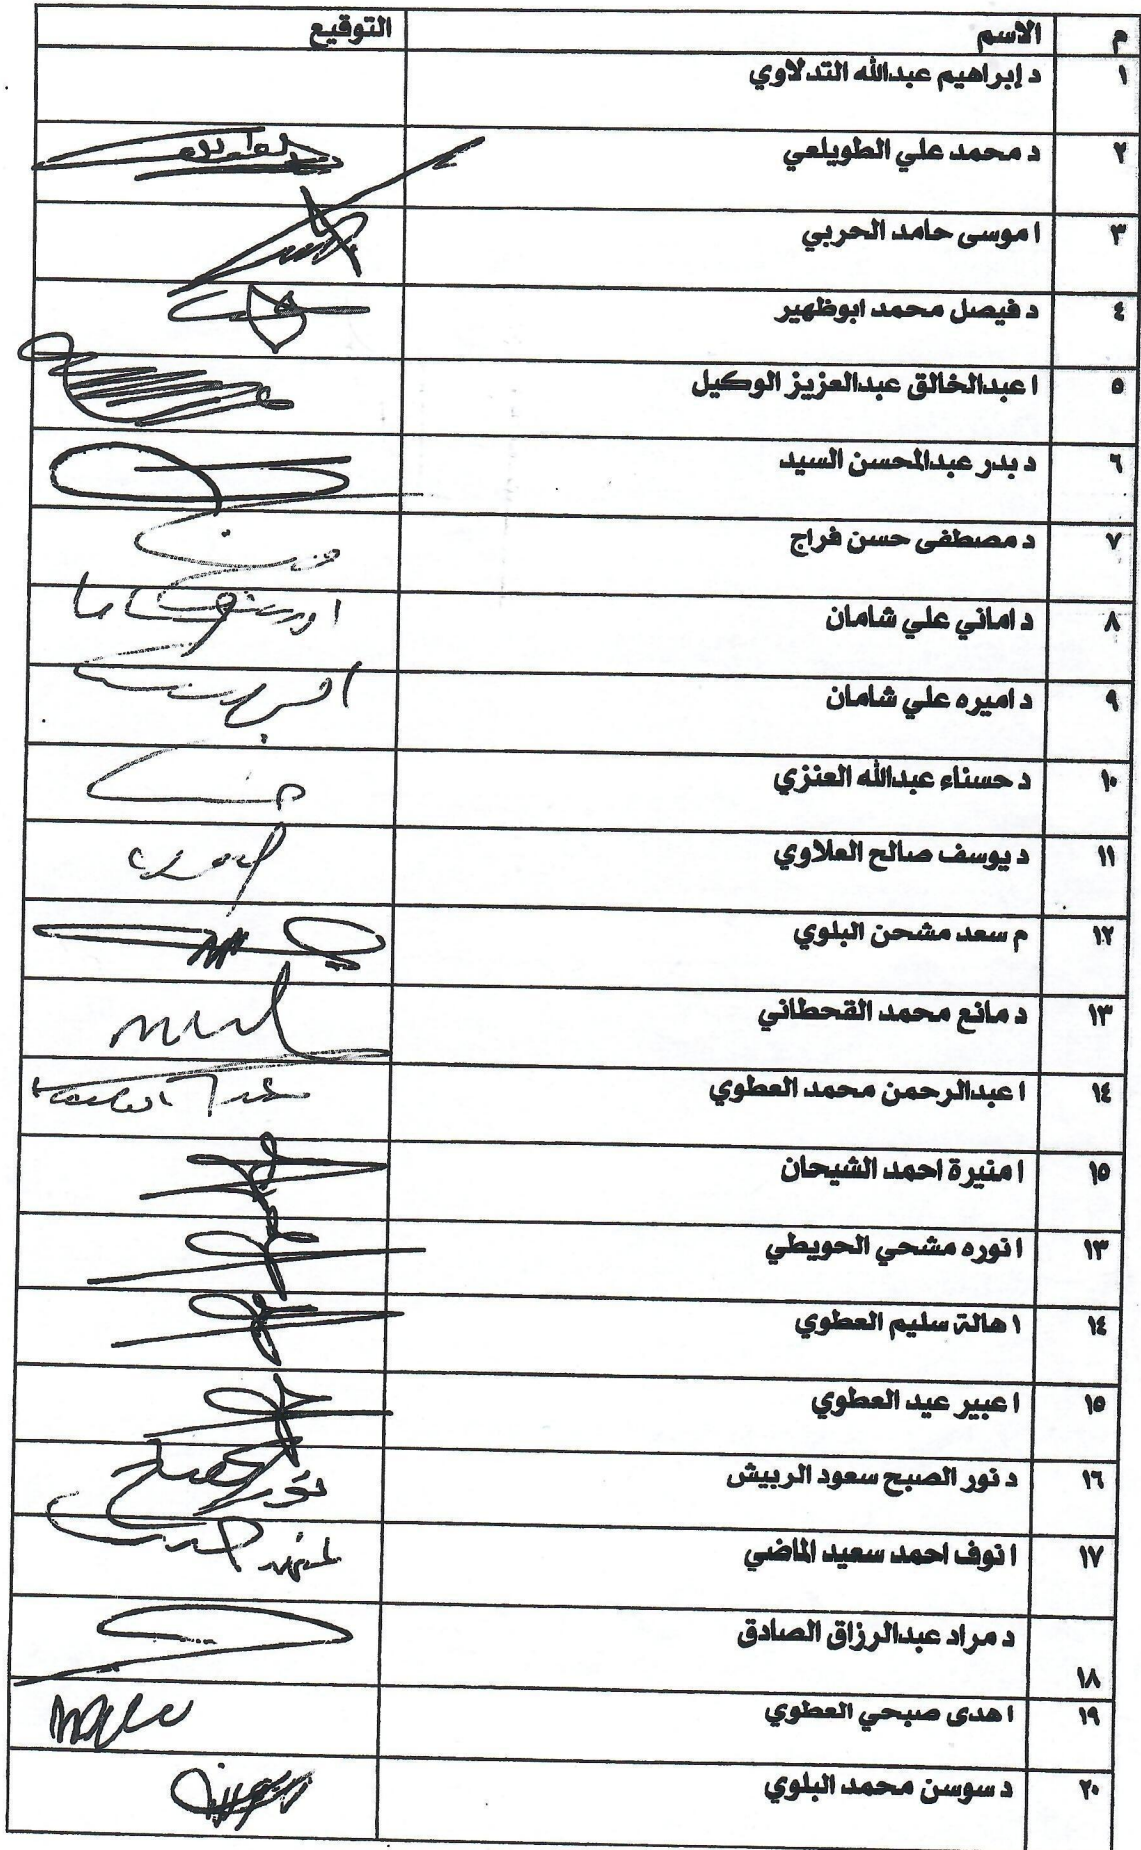 م الاسم التوقيع
١ د إبراهيم عبدالله التدلاوي
٢ د محمد علي الطويلعي
٣ ا موسى حامد الحربي
٤ د فيصل محمد ابوظهير
٥ ا عبدالخالق عبدالعزيز الوكيل
٦ د بدر عبدالمحسن السيد
٧ د مصطفى حسن فراج
٨ د اماني علي شامان
٩ د اميره علي شامان
١٠ د حسناء عبدالله العنزي
١١ د يوسف صالح العلاوي
١٢ م سعد مشحن البلوي
١٣ د مانع محمد القحطاني
١٤ ا عبدالرحمن محمد العطوي
١٥ ا منيرة احمد الشيحان
١٣ ا نوره مشحي الحويطي
١٤ ا هالة سليم العطوي
١٥ ا عبير عيد العطوي
١٦ د نور الصبح سعود الربيش
١٧ ا نوف احمد سعيد الماضي
١٨ د مراد عبدالرزاق الصادق
١٩ ا هدى صبحي العطوي
٢٠ د سوسن محمد البلوي